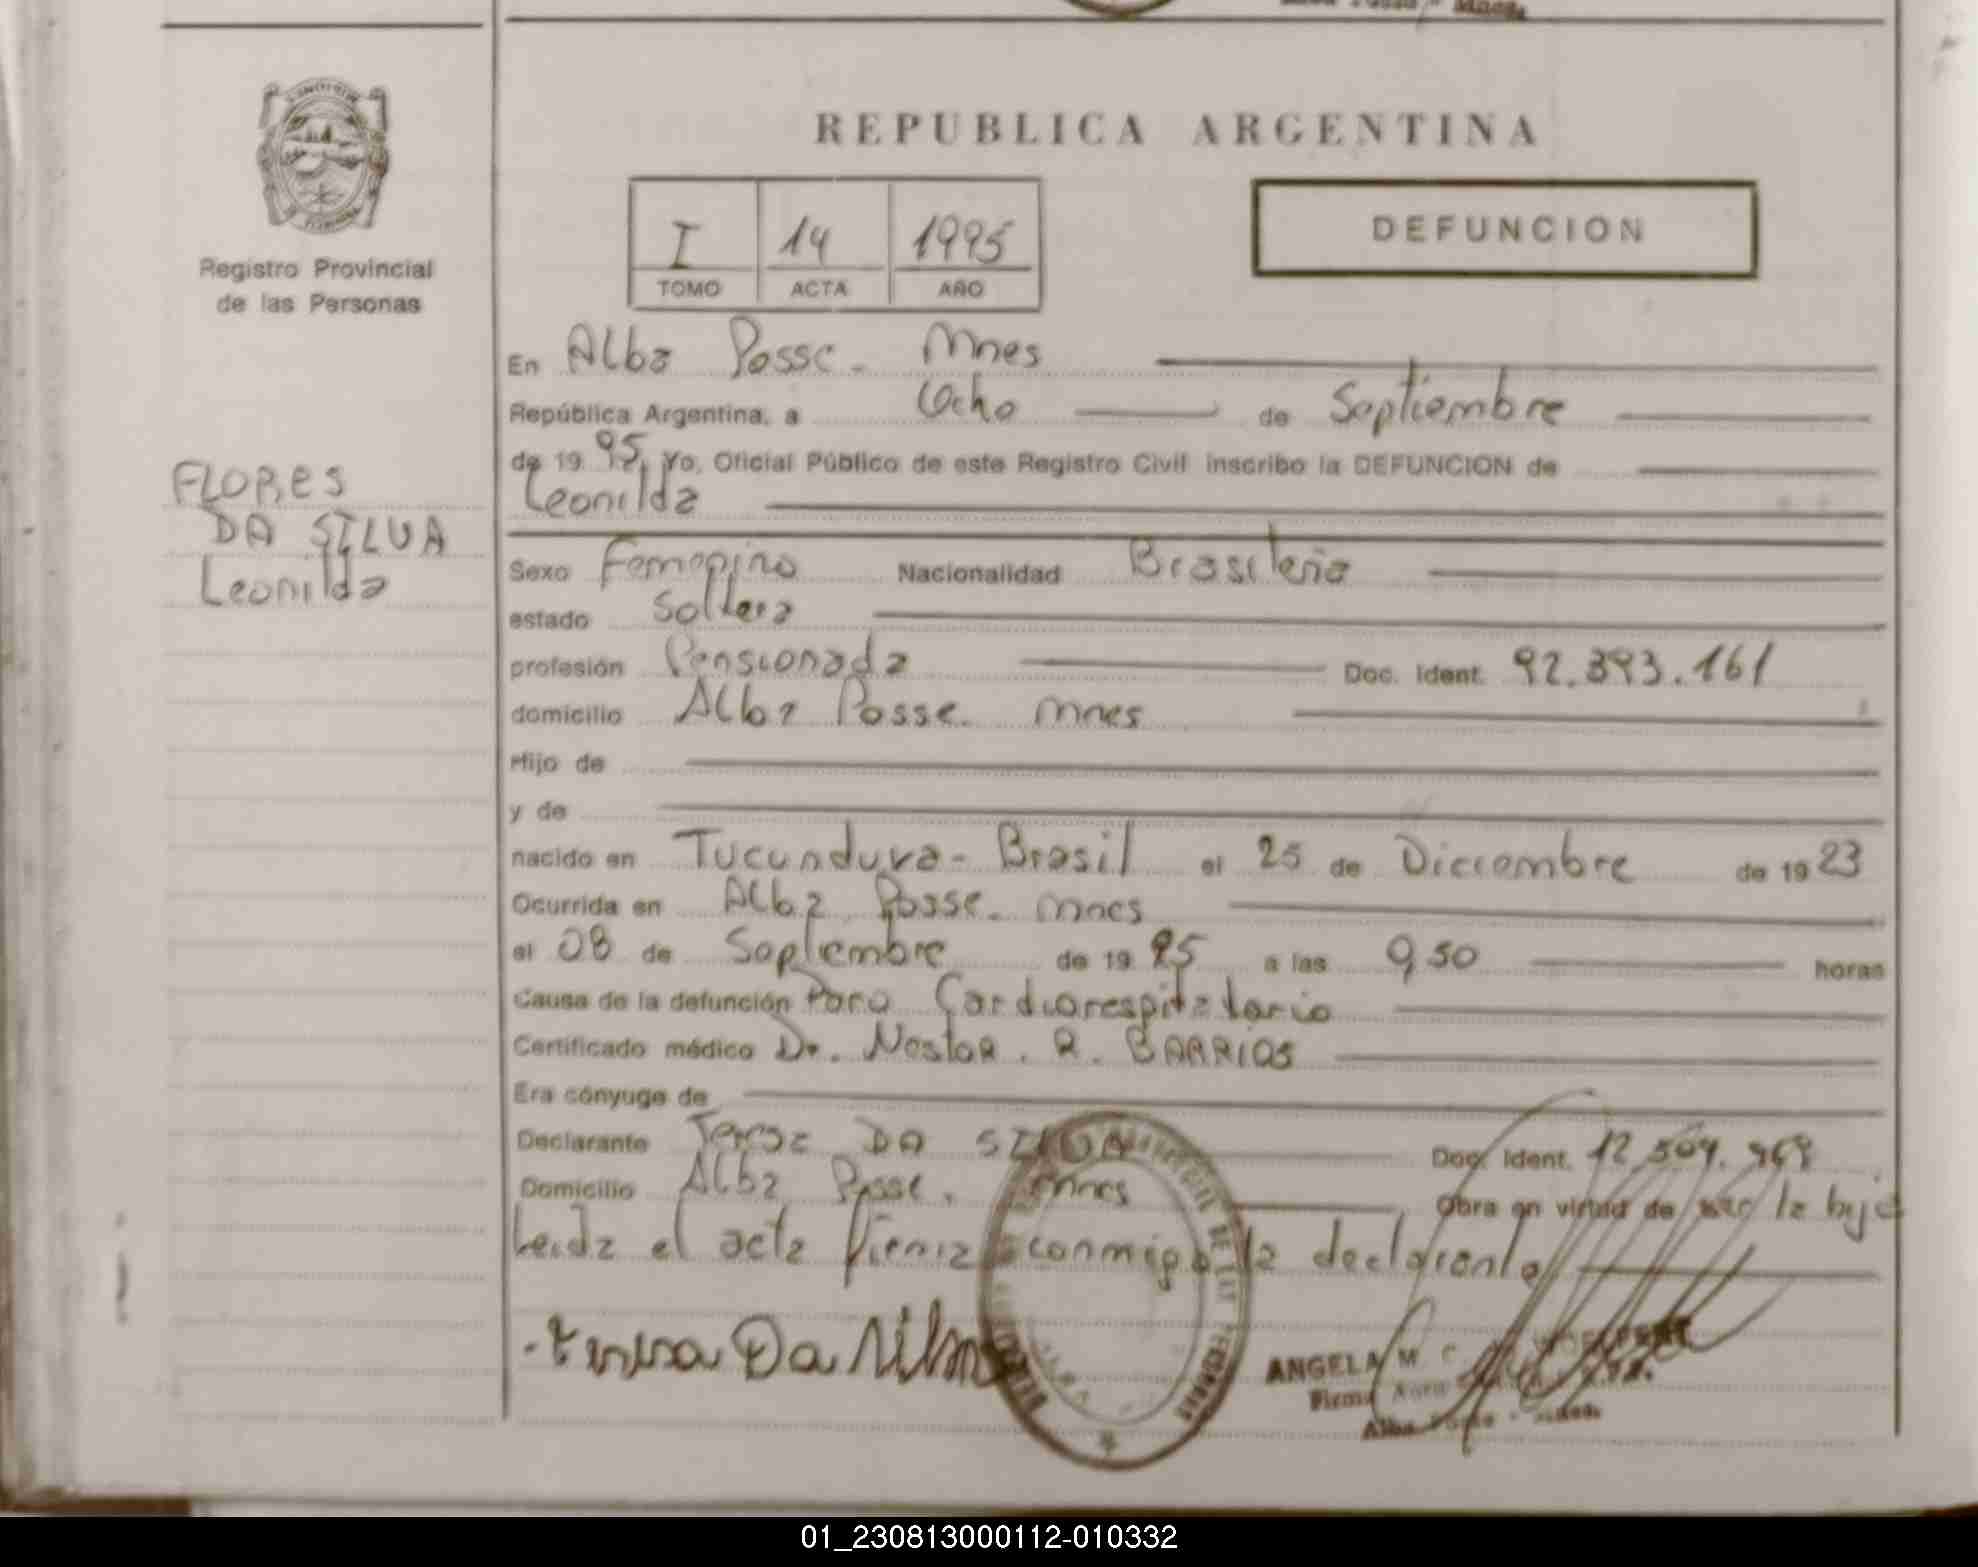 REPUBLICA ARGENTINA
Registro Provincial
de las Personas
I 14 1995
TOMO ACTA AÑO
DEFUNCION
FLORES
DA SILVA
Leonilda
En Alba Posse. Mnes
República Argentina, a Ocho de Septiembre
de 19 95, Yo, Oficial Público de este Registro Civil inscribo la DEFUNCION de
Leonilda
Sexo Femenino Nacionalidad Brasileña
estado Soltera
profesión Pensionada Doc. Ident. 92.393.161
domicilio Alba Posse. Mnes
Hijo de
y de
nacido en Tucunduva - Brasil el 25 de Diciembre de 19 23
Ocurrida en Alba Posse. Mnes
el 08 de Septiembre de 19 95 a las 9,50 horas
Causa de la defunción Paro Cardiorespiratorio
Certificado médico Dr. Nestor. R. BARRIOS
Era cónyuge de
Declarante Teresa DA SILVA Doc. Ident. 12.509.969
Domicilio Alba Posse. Mnes Obra en virtud de ser la hija
Leida el acta firma conmigo la declarante
Teresa Da Silva
ANGELA M C
Firma
Alba Posse - Mnes.
01_230813000112-010332